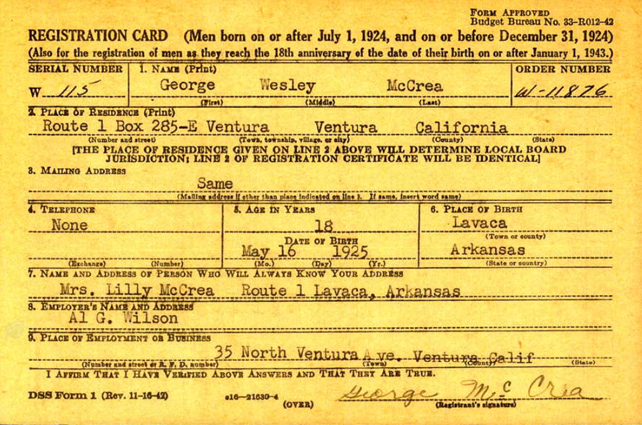 FORM APPROVED
Budget Bureau No. 33-R012-42
REGISTRATION CARD (Men born on or after July 1, 1924, and on or before December 31, 1924)
(Also for the registration of men as they reach the 18th anniversary of the date of their birth on or after January 1, 1943.)
SERIAL NUMBER 1. NAME (Print) ORDER NUMBER
W 115 George Wesley McCrea W-11876
(First) (Middle) (Last)
2. PLACE OF RESIDENCE (Print)
Route 1 Box 285-E Ventura Ventura California
(Number and street) (Town, township, village, or city) (County) (State)
[THE PLACE OF RESIDENCE GIVEN ON LINE 2 ABOVE WILL DETERMINE LOCAL BOARD
JURISDICTION; LINE 2 OF REGISTRATION CERTIFICATE WILL BE IDENTICAL]
3. MAILING ADDRESS
Same
(Mailing address if other than place indicated on line 2. If same, insert word same)
4. TELEPHONE 5. AGE IN YEARS 6. PLACE OF BIRTH
None 18 Lavaca
DATE OF BIRTH (Town or county)
May 16 1925 Arkansas
(Exchange) (Number) (Mo.) (Day) (Yr.) (State or country)
7. NAME AND ADDRESS OF PERSON WHO WILL ALWAYS KNOW YOUR ADDRESS
Mrs. Lilly McCrea Route 1 Lavaca, Arkansas
8. EMPLOYER'S NAME AND ADDRESS
Al G. Wilson
9. PLACE OF EMPLOYMENT OR BUSINESS
35 North Ventura Ave. Ventura Calif
(Number and street or R. F. D. number) (Town) (County) (State)
I AFFIRM THAT I HAVE VERIFIED ABOVE ANSWERS AND THAT THEY ARE TRUE.
George McCrea
DSS Form 1 (Rev. 11-16-42) 16-21630-4 (Registrant's signature)
(OVER)